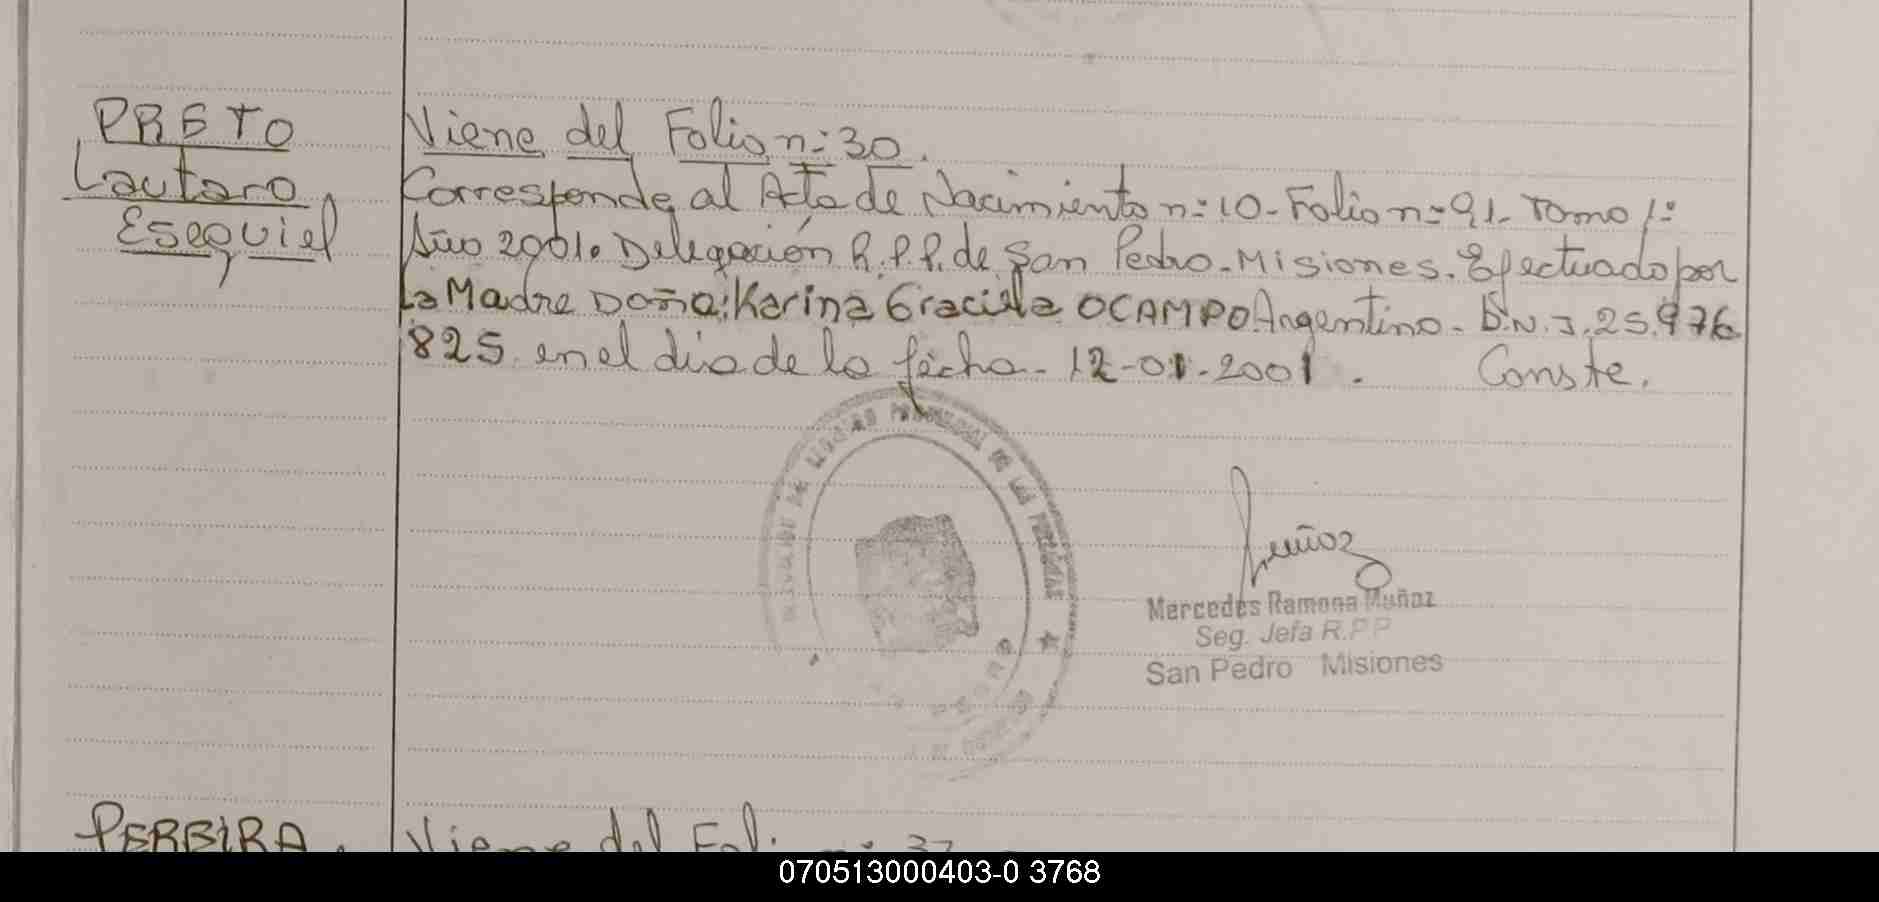 PRETO
Lautaro
Esequiel
Viene del Folio n:30.
Corresponde al Acta de Nacimiento n:10-Folio n:91-Tomo 1:
Año 2001. Delegación R.P.P. de San Pedro-Misiones. Efectuado por
La Madre Doña: Karina Graciela OCAMPO Argentino-D.N.I. 25.976
825 en el dia de la fecha-12-01-2001. Conste.
Muñoz
Mercedes Ramona Muñoz
Seg. Jefa R.P.P
San Pedro Misiones
PEREIRA.
Viene del Foli
070513000403-0 3768